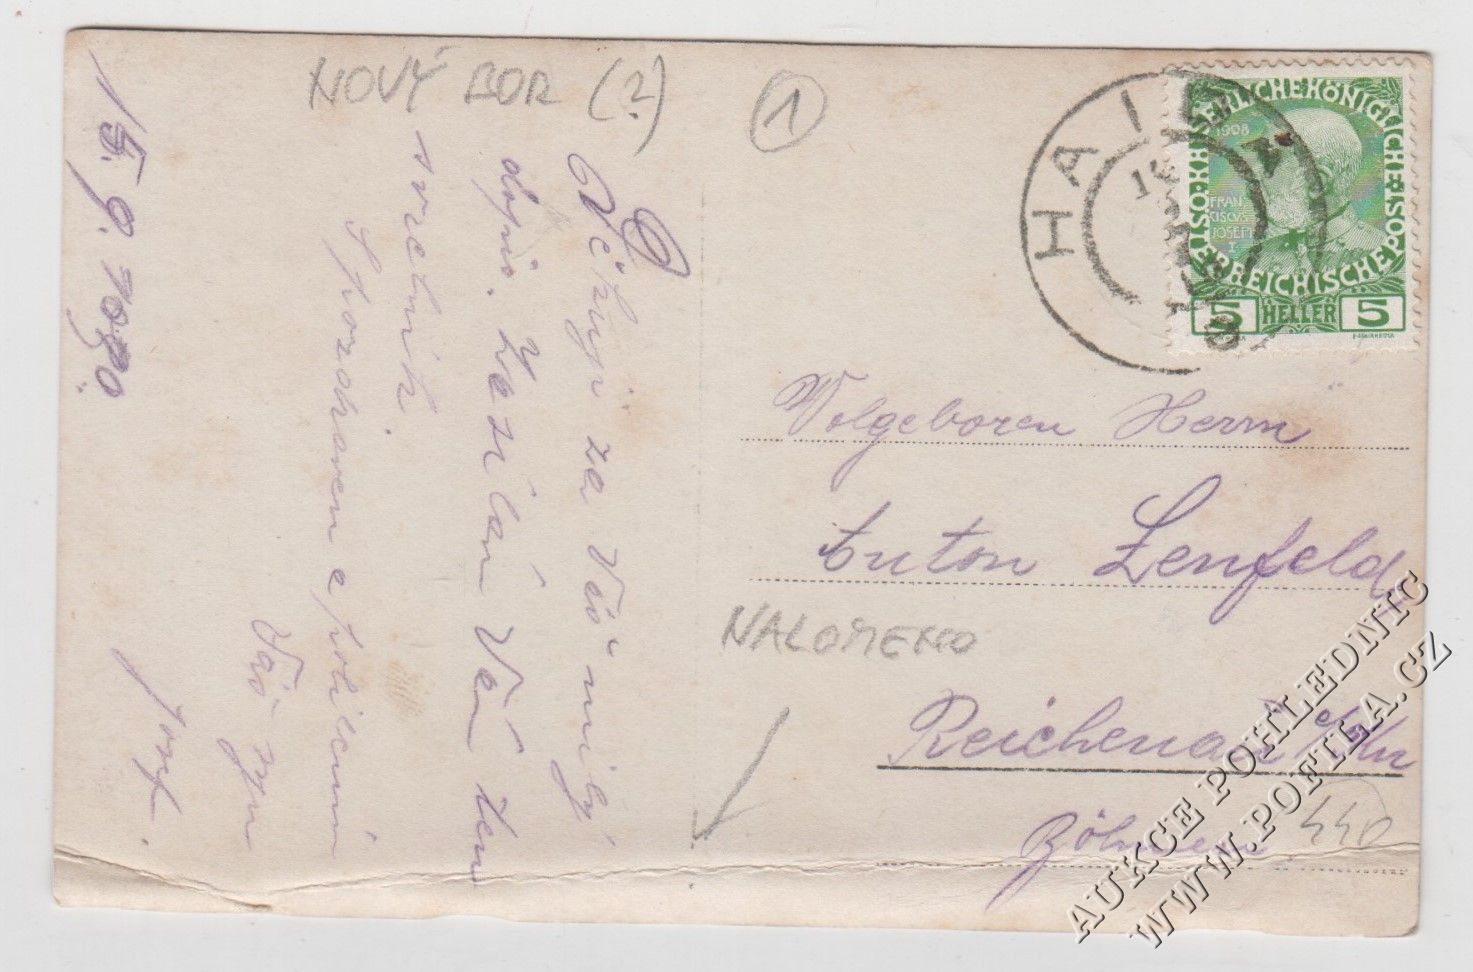 NOVÝ BOR (?)
1
Děkuji za Váš milý
dopis. Zasílám Vám ten
svatník.
S pozdravem a políbením
Váš syn
Josef.
15. 9. 1910.
HAID
KAISERLICHEKÖNIGLICHE
ÖSTERREICHISCHE POST
1908
FRAN
CISCUS
JOSEPH
I
5 HELLER 5
Wolgeboren Herrn
Anton Lenfeld
NALOMENO
Reichenau a/Kn
Böhmen
440
AUKCE POHLEDNIC
WWW.POFILA.CZ